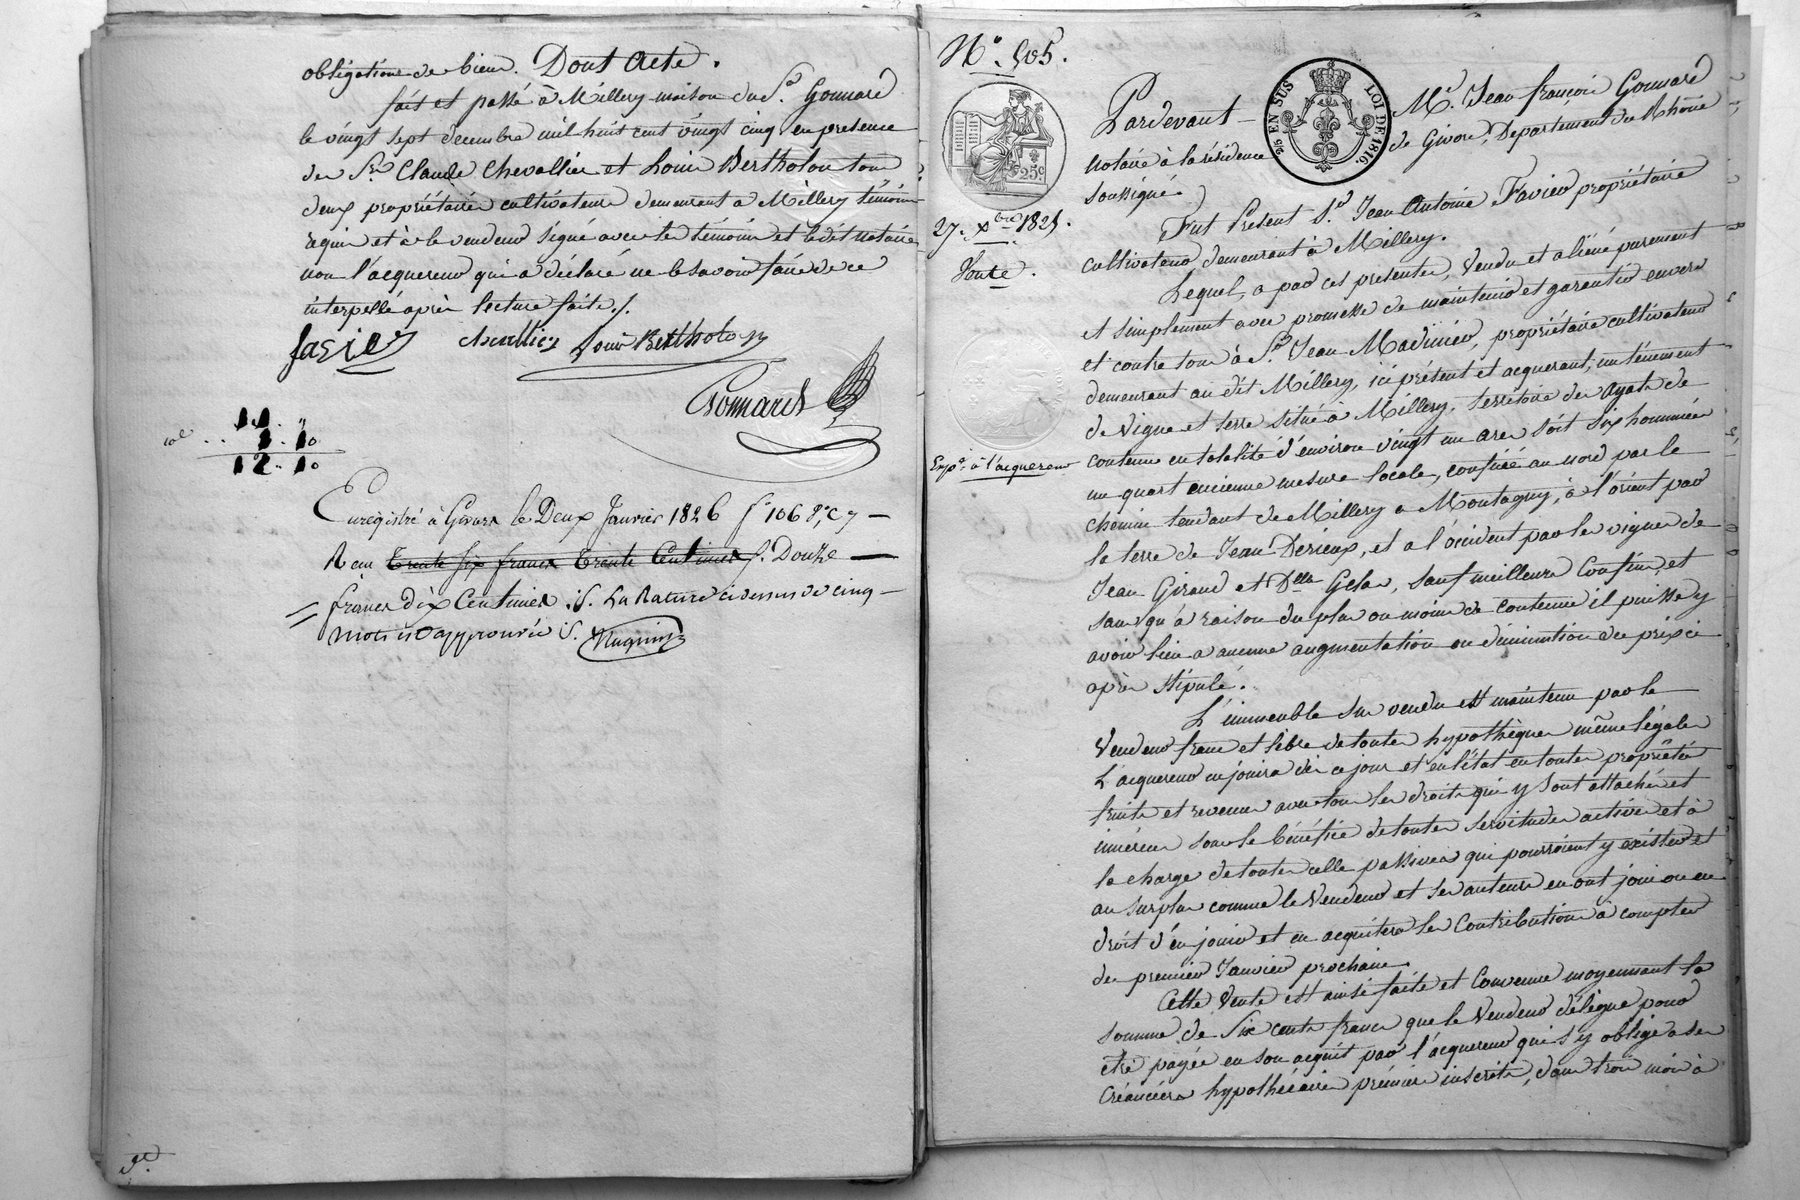 obligations de biens. Dont Acte.
fait et passé à Millery maison du Sr. Gonnard
le vingt sept decembre mil huit cent vingt cinq en presence
des Srs Claude Chevallier et Louis Bertholon tous
deux propriétaires cultivateurs demeurant a Millery témoins
requis et à le vendeur signé avec les témoins et le dit notaire
non l'acquereur qui a déclaré ne le savoir faire de ce
interpellé après lecture faite ./.
favier chevallier Louis Bertholon
Gonnard
11. "
1. 10
12. 10
Enregistré à Givors le Deux Janvier 1826 fo 106 Vo C 7 —
Reçu Trente six francs Trente Centimes S. Douze —
francs dix Centimes .S. La Rature ci dessus de cinq —
mots est approuvée S.
No. 505.
25 EN SUS LOI DE 1816.
25 c.
27. Xbre 1825.
Vente.
Expon à l'acquereur
Pardevant Me. Jean françois Gonnard
notaire à la résidence de Givors, Departement du Rhône
soussigné
Fut Présent Sr. Jean Antoine Favier propriétaire
cultivateur demeurant à Millery.
Lequel, a par ces presentes, vendu et aliéné purement
et simplement avec promesse de maintenir et garentir envers
et contre tous à Sr. Jean Madinier, propriétaire cultivateur
demeurant au dit Millery, ici présent et acquerant, un ténement
de vigne et terre situé à Millery, territoire des Ayats de
contenue en totalité d'environ vingt un ares soit six hommées
un quart ancienne mesure locale, confiné au nord par le
chemin tendant de Millery a Montagny, à l'orient par
la terre de Jean Derieux, et a l'occident par les vignes de
Jean Giraud et Dlle Gelas, sauf meilleurs confins, et
sans qu'à raison du plus ou moins de contenue il puisse y
avoir lieu a aucune augmentation ou diminution du prix ci
après stipulé.
L'immeuble sus vendu est maintenu par le
Vendeur franc et libre de toutes hypothèques même légales
L'acquereur en jouira dès ce jour et en l'état en toutes propriétés
fruits et revenus avec tous les droits qui y sont attachés et
inhérens sous le bénéfice de toutes servitudes actives et à
la charge de toutes celles passives qui pourroient y exister et
au surplus comme le Vendeur et ses auteurs en ont joui ou eu
droit d'en jouir et en acquittera les Contributions à compter
du premier Janvier prochain
Cette Vente est ainsi faite et Convenue moyennant la
somme de Six cents francs que le Vendeur délègue pour
être payée en son acquit par l'acquereur qui s'y oblige a ses
Créanciers hypothécaires premiers inscrits, dans trois mois à